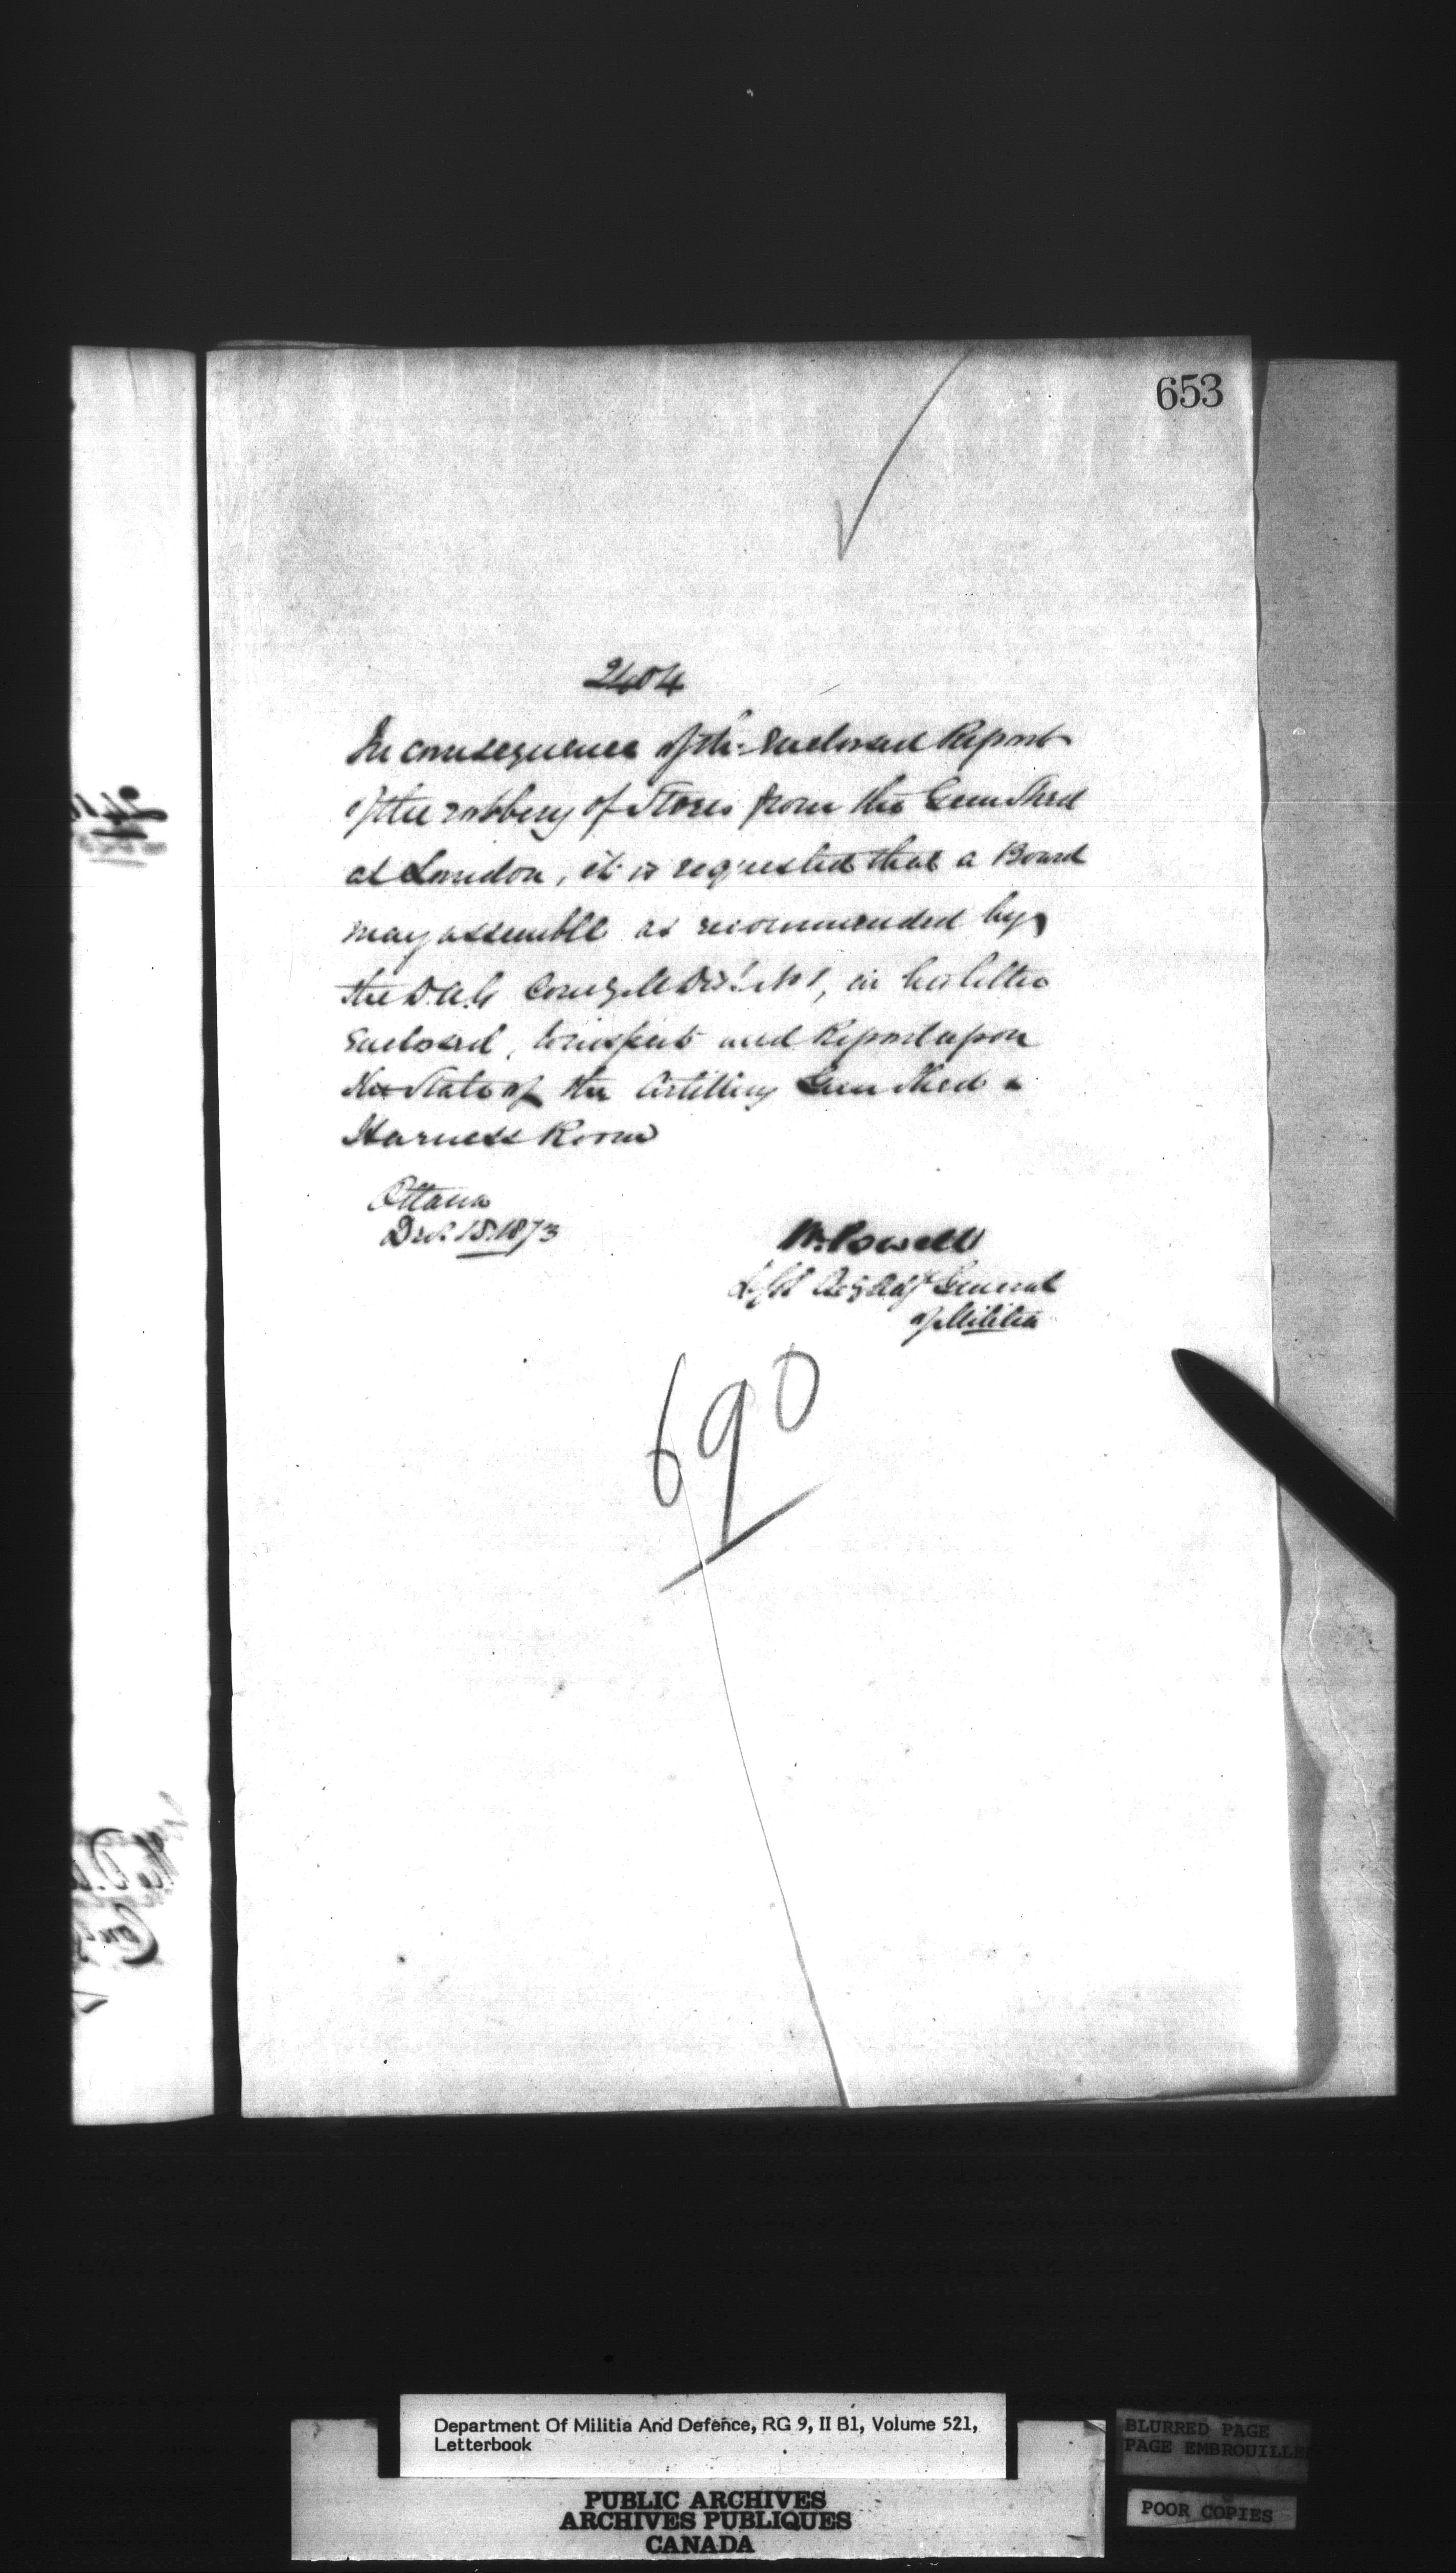 653
2404
In consequence of the enclosed Report
of the robbery of Stores from the Gun Shed
at London, it is requested that a Board
may assemble as recommended by
the D.A.G Comg M Dist No 1, in his letter
enclosed, to inspect and Report upon
the State of the Artillery Gun Shed &
Harness Room
Ottawa
Dec. 15. 1873
W. Powell
Actg Adjt General
of Militia
690
Department Of Militia And Defence, RG 9, II B1, Volume 521,
Letterbook
BLURRED PAGE
PAGE EMBROUILLE
POOR COPIES
PUBLIC ARCHIVES
ARCHIVES PUBLIQUES
CANADA